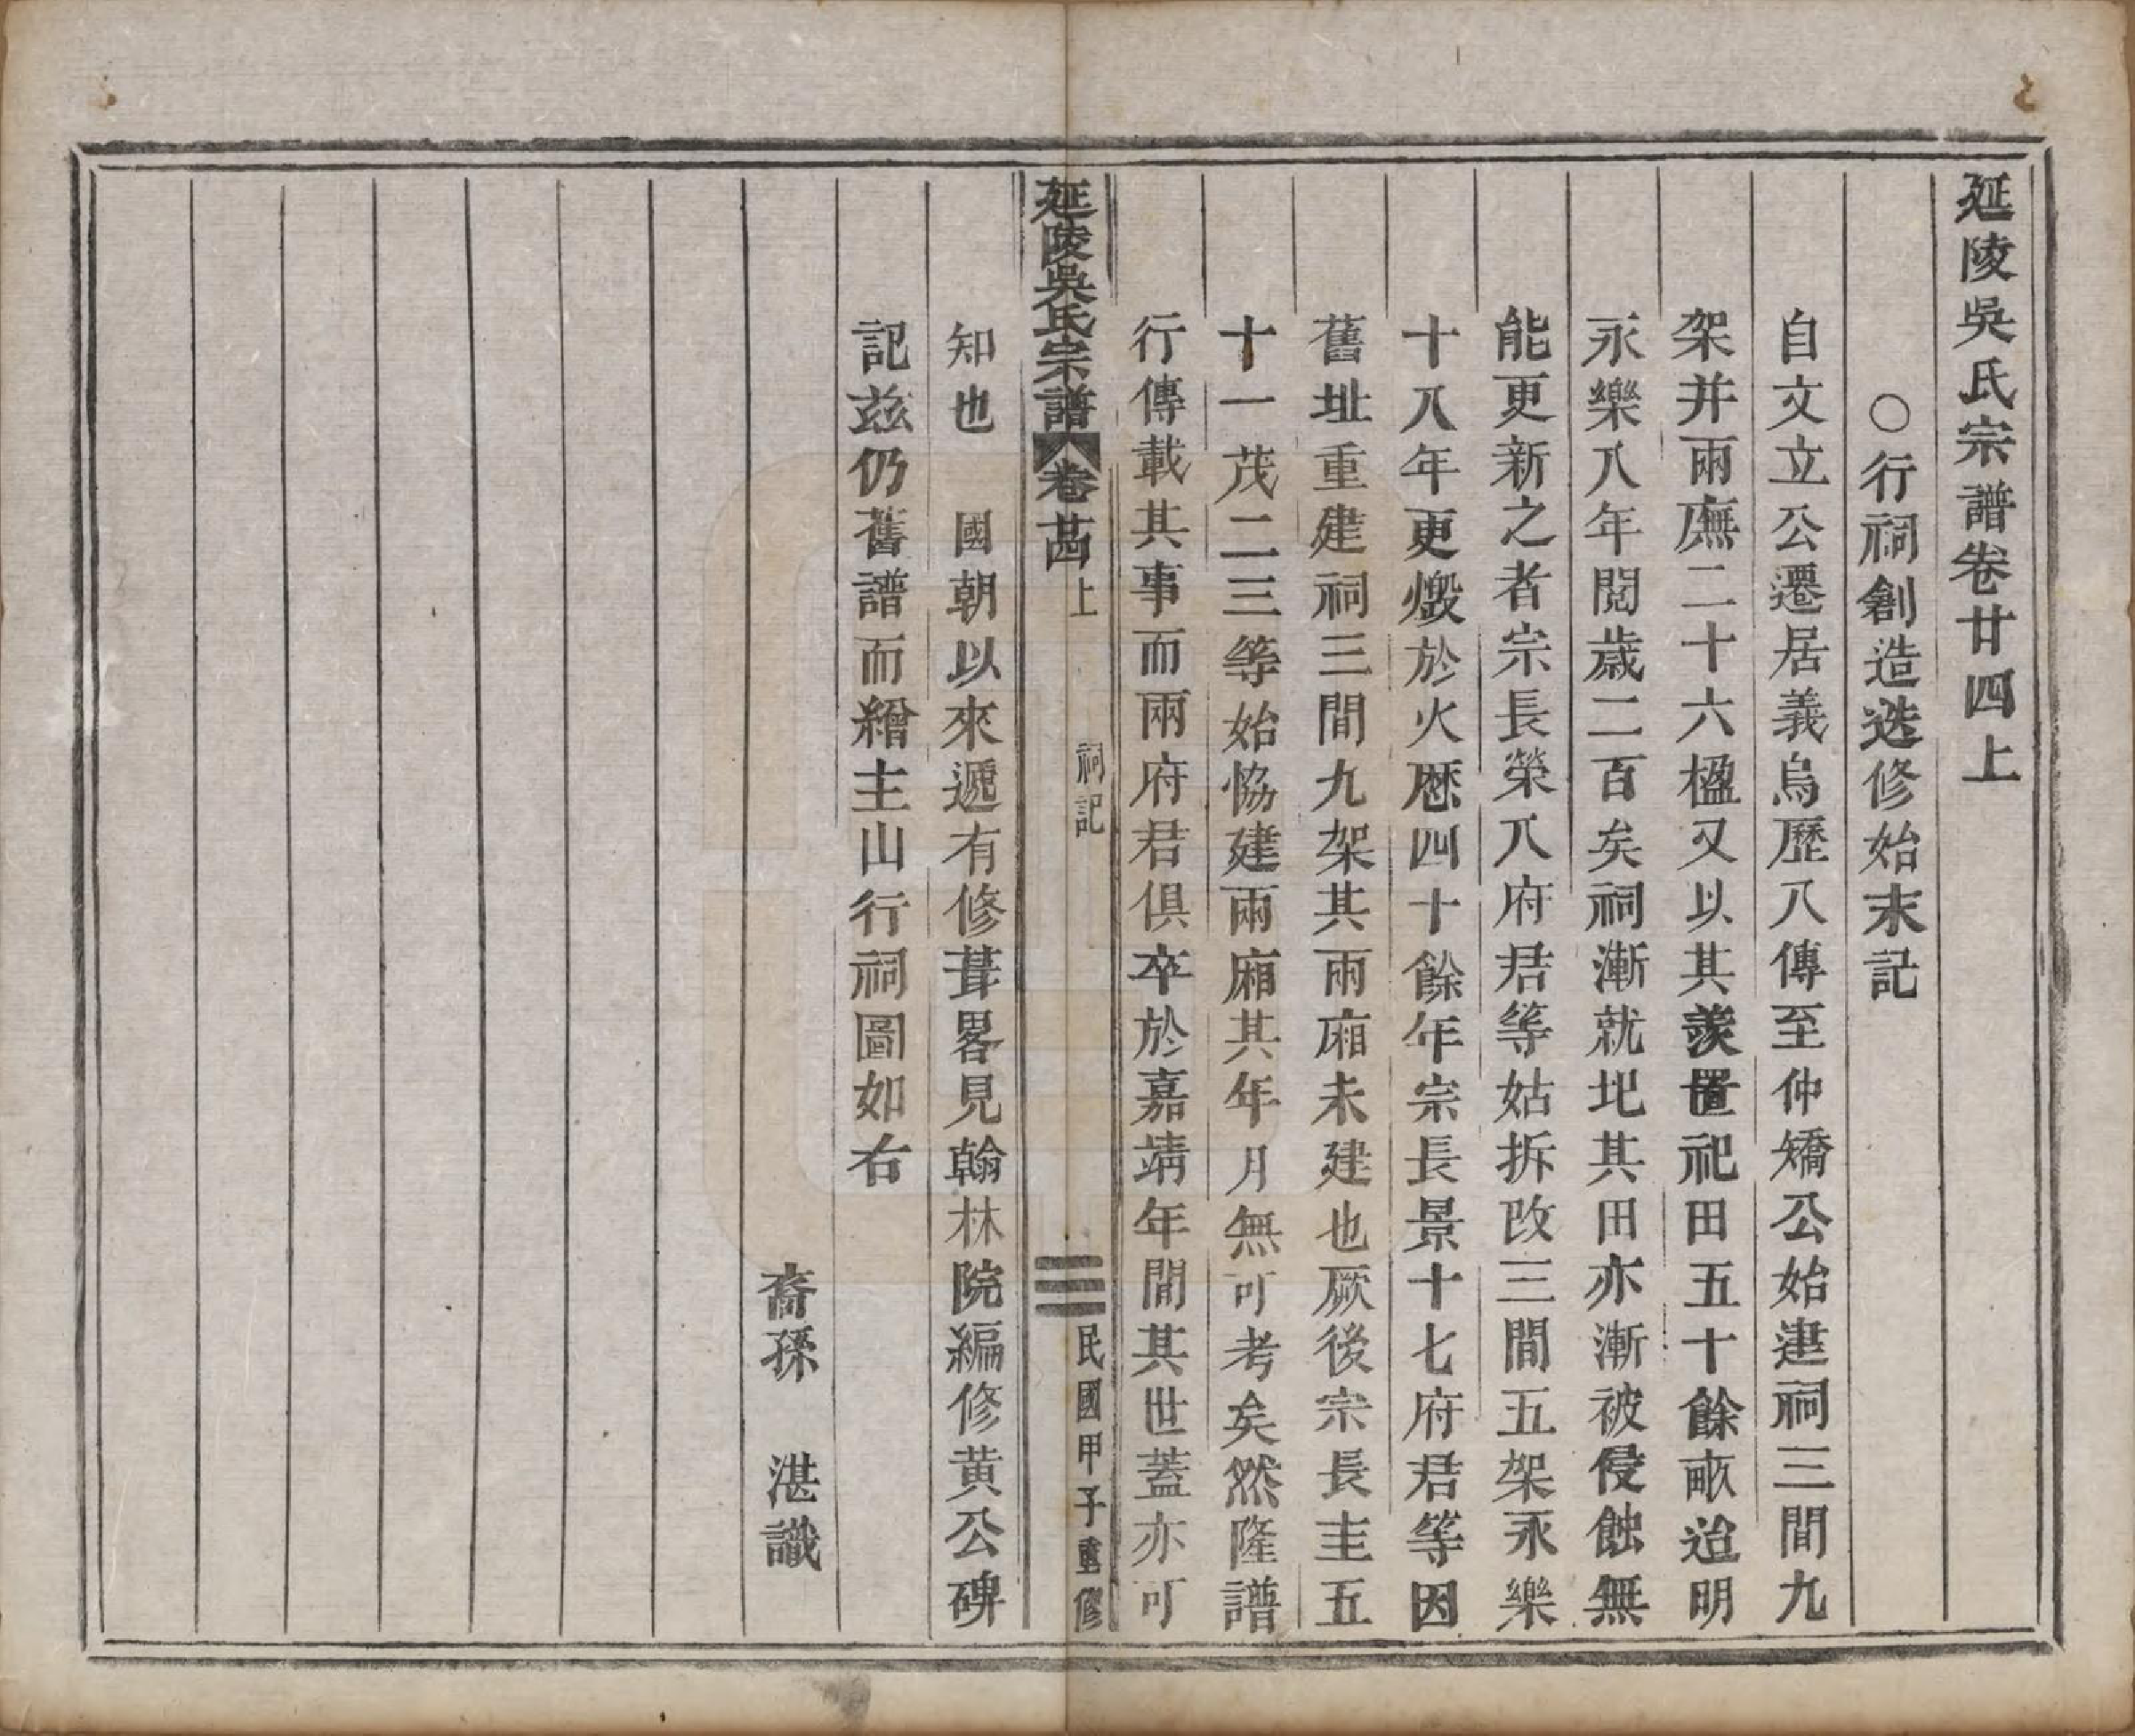 延陵吳氏宗譜卷廿四上
○行祠創造迭修始末記
自文立公遷居義烏歷八傳至仲矯公始建祠三間九
架并兩廡二十六楹又以其羨置祀田五十餘畝迨明
永樂八年閱歲二百矣祠漸就圮其田亦漸被侵蝕無
能更新之者宗長榮八府君等姑拆改三間五架永樂
十八年更燬於火歷四十餘年宗長景十七府君等因
舊址重建祠三間九架其兩廂未建也厥後宗長圭五
十一茂二三等始協建兩廂其年月無可考矣然隆譜
行傳載其事而兩府君俱卒於嘉靖年間其世蓋亦可
延陵吳氏宗譜 卷廿四上 祠記 三 民國甲子重修
知也 國朝以來遞有修葺畧見翰林院編修黃公碑
記茲仍舊譜而繪主山行祠圖如右
裔孫 湛識